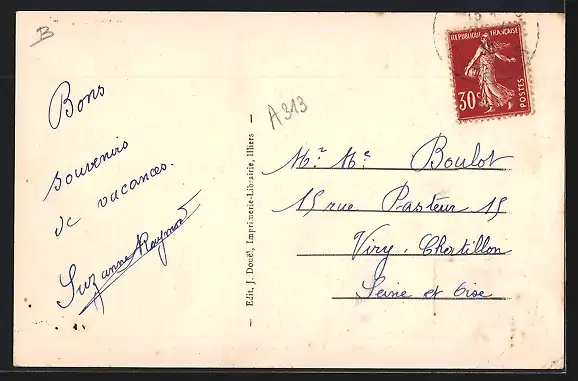 B
Bons
souvenirs
de vacances.
Suzanne Raymond
Edit. J. Douët, Imprimerie-Librairie, Illiers
A313
REPUBLIQUE FRANÇAISE
30c
POSTES
Mr Me Boulot
15 rue Pasteur 15
Viry-Chatillon
Seine et Oise